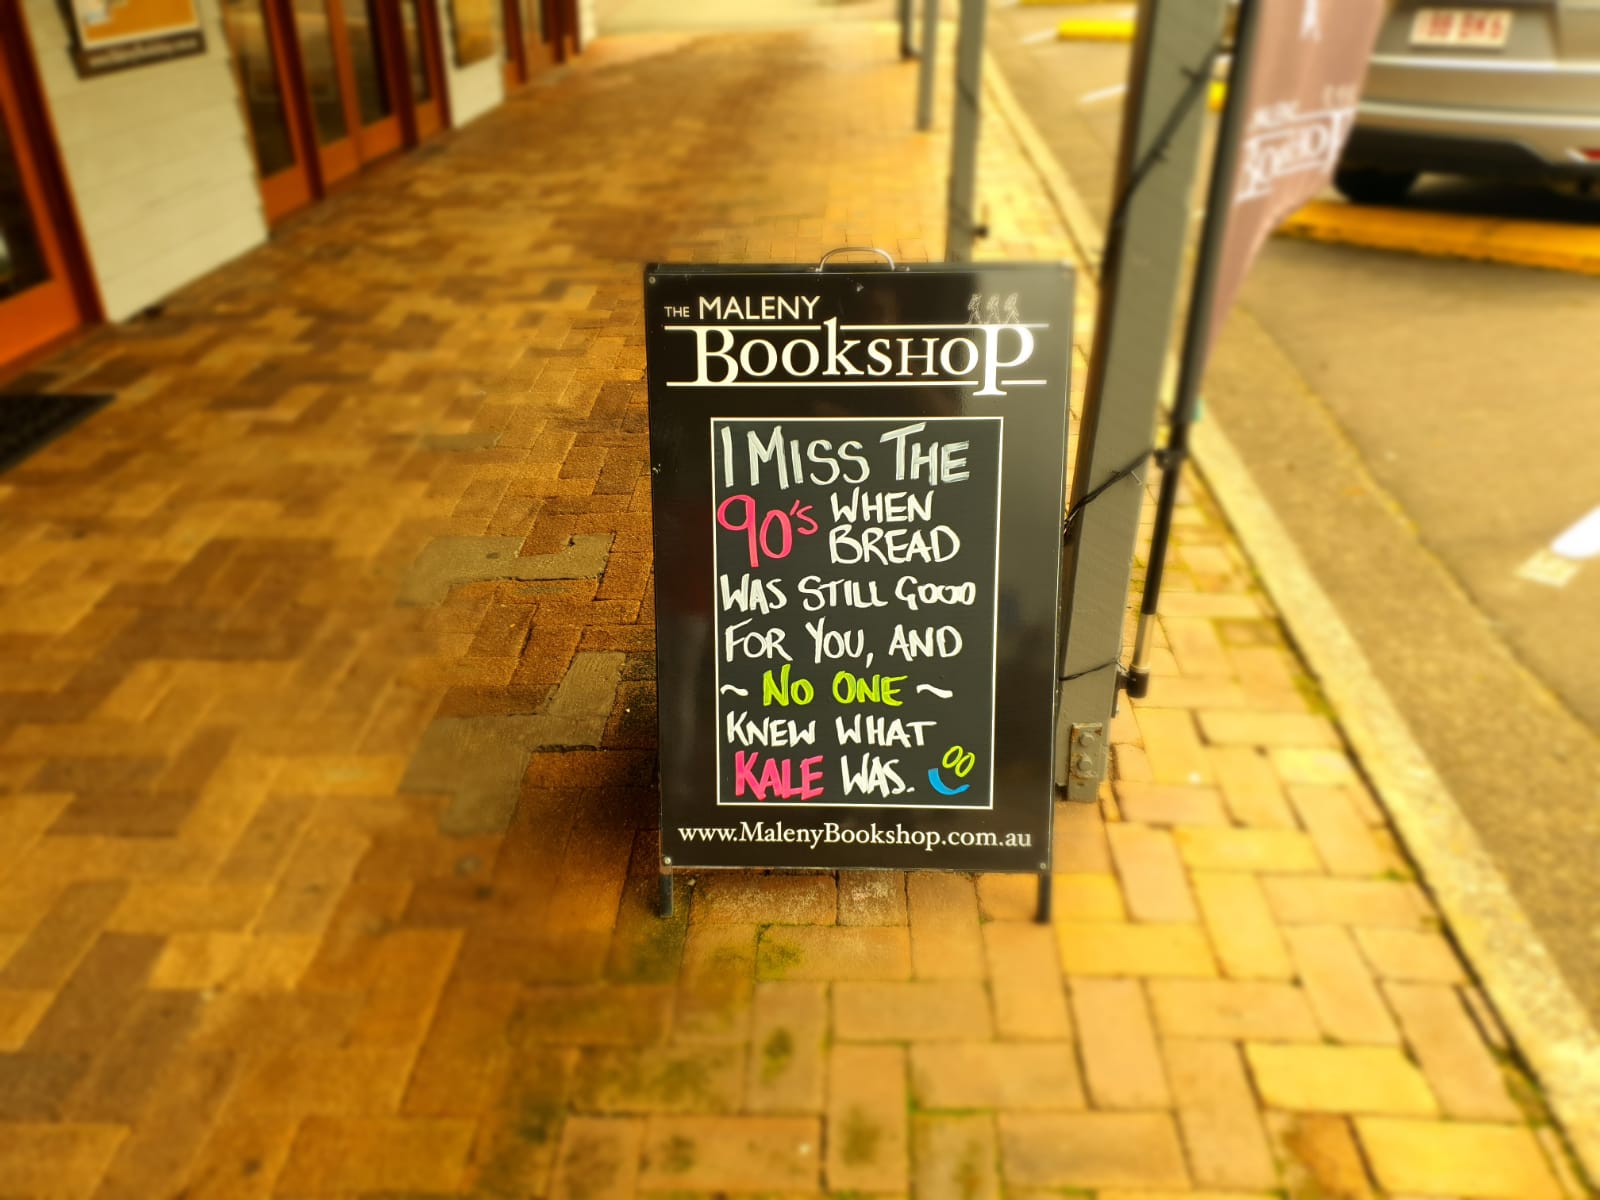 THE MALENY
BOOKSHOP
I MISS THE
90'S WHEN
BREAD
WAS STILL GOOD
FOR YOU, AND
~ NO ONE ~
KNEW WHAT
KALE WAS.
www.MalenyBookshop.com.au